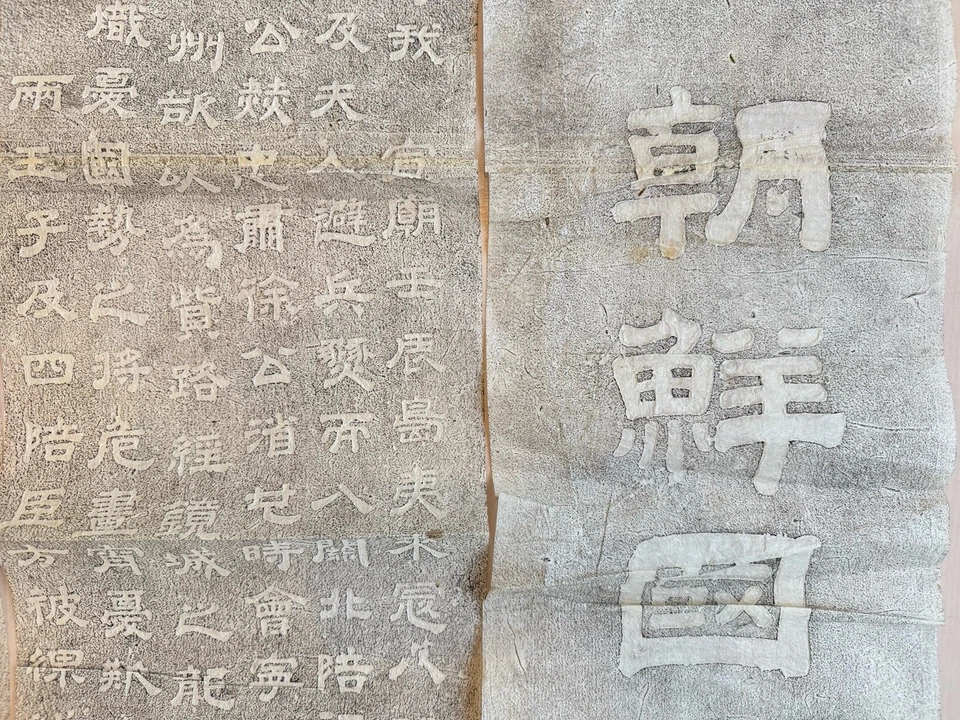 朝鮮國
我宣廟壬辰島夷來寇八
及夫人避兵燹而入關北陪
公忠肅徐公渻其時會寧
州欲為路經鏡城之龍
熾憂國勢之將危晝宵憂歎
兩王子及四陪臣方被縲